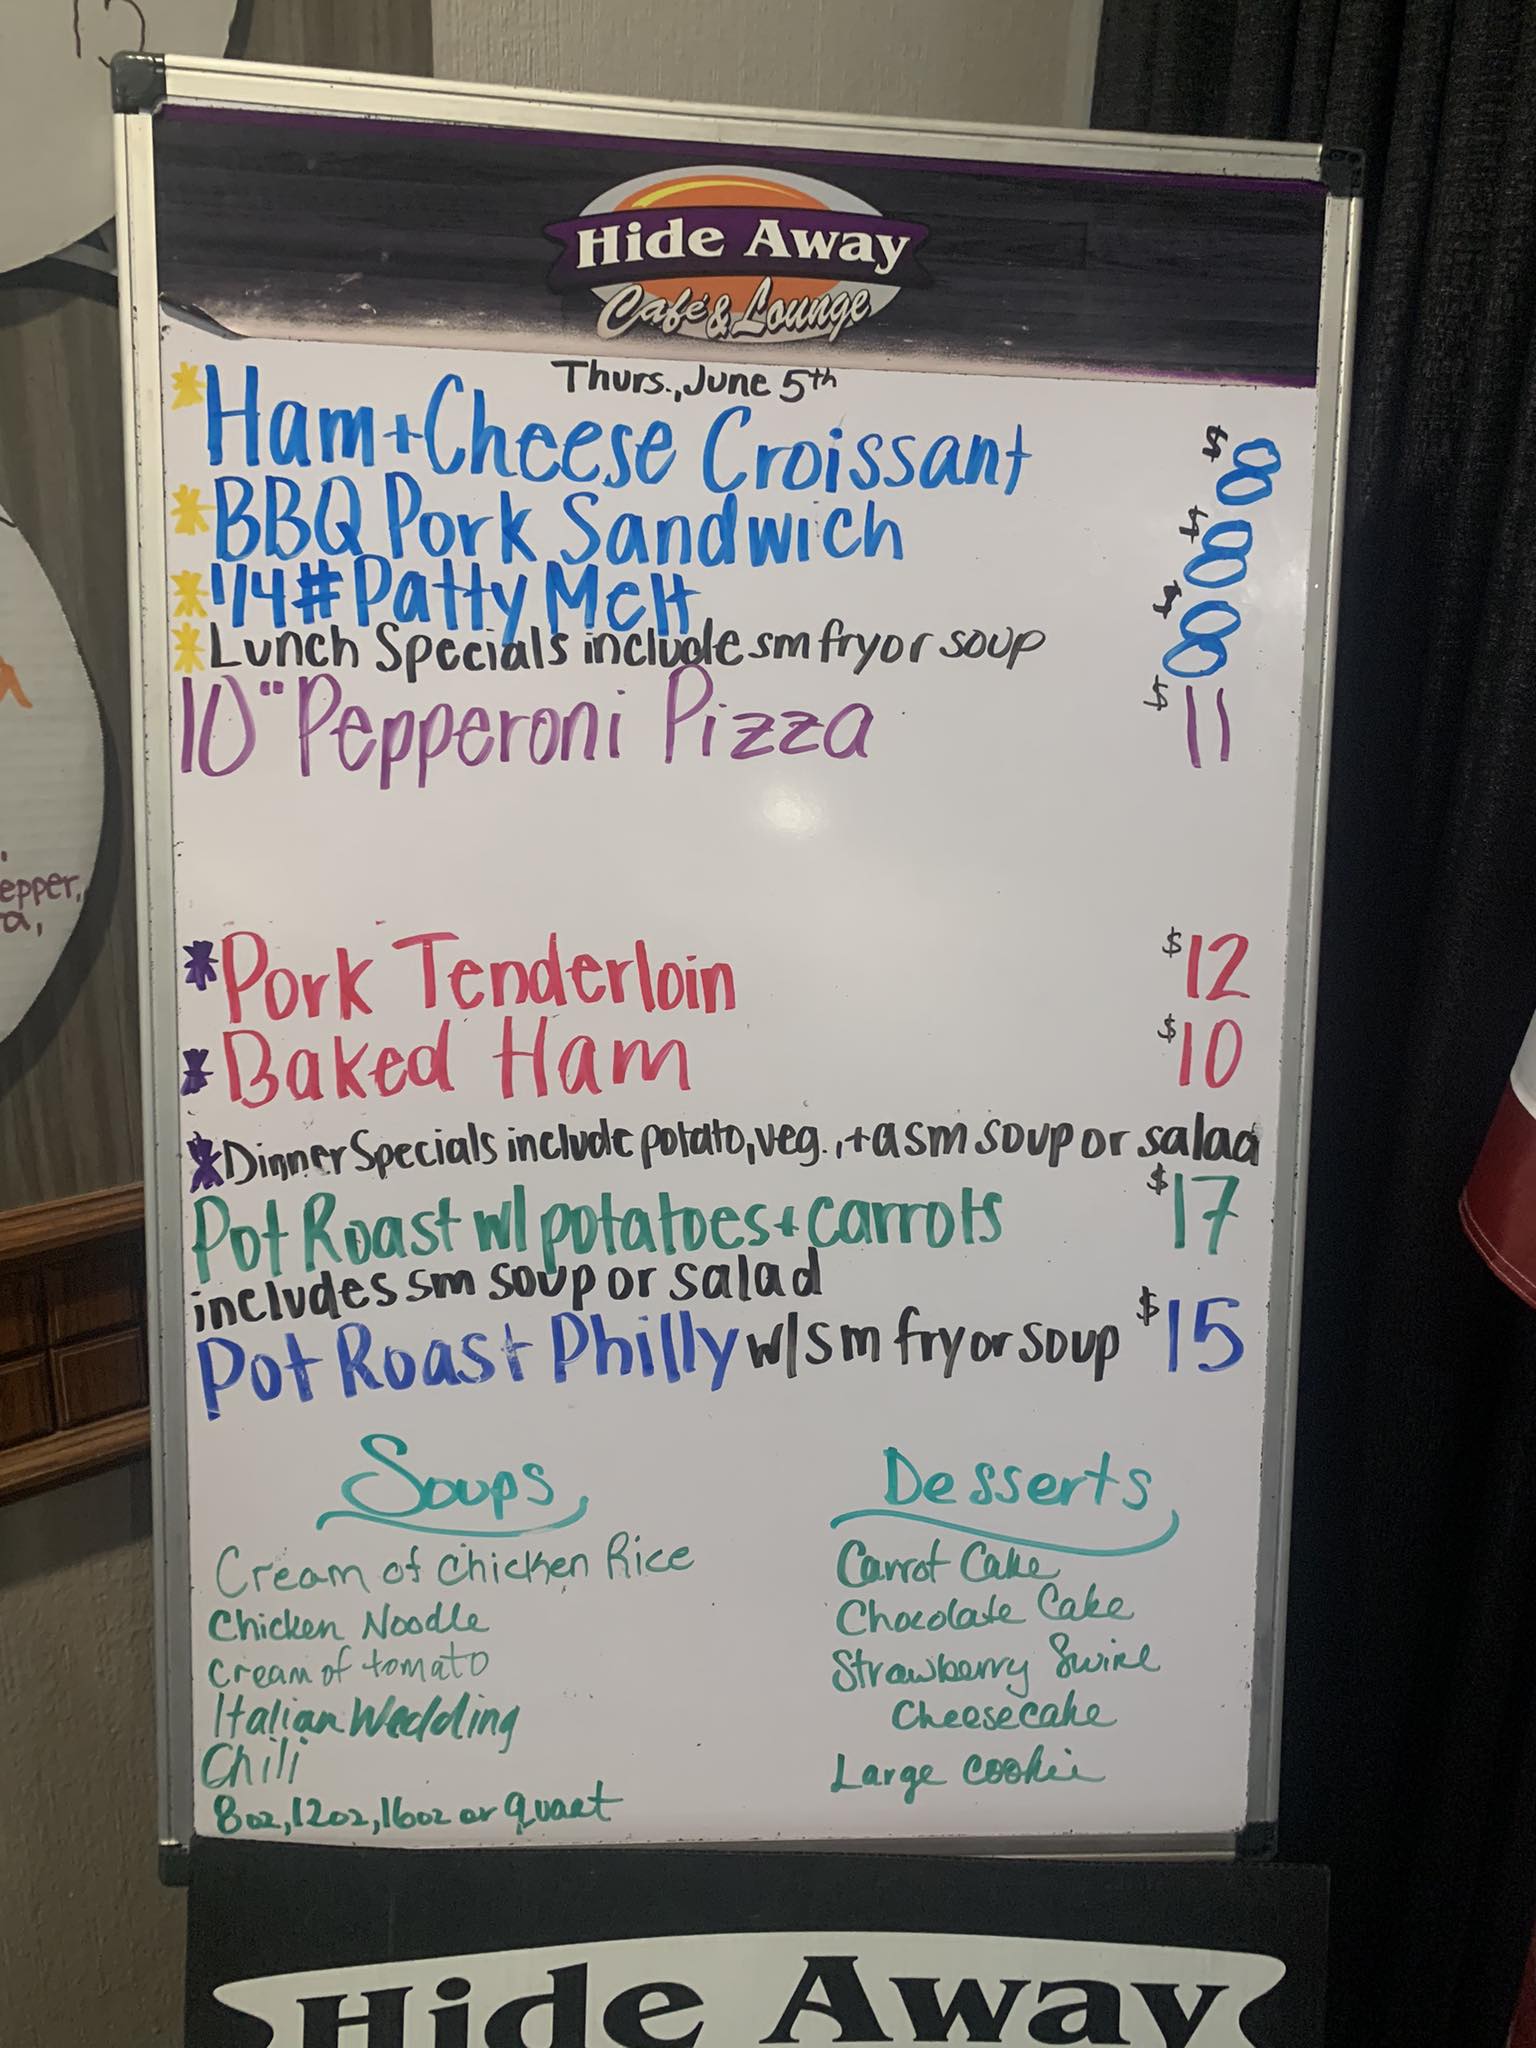 13
Hide Away
Café & Lounge
Thurs., June 5th
*Ham + Cheese Croissant $8
*BBQ Pork Sandwich $8
*1/4# Patty Melt $8
*Lunch Specials include sm fry or soup
10" Pepperoni Pizza $11
epper,
a,
*Pork Tenderloin $12
*Baked Ham $10
*Dinner Specials include potato, veg., + a sm soup or salad
Pot Roast w/ potatoes + carrots $17
includes sm soup or salad
Pot Roast Philly w/ sm fry or soup $15
Soups
Cream of Chicken Rice
Chicken Noodle
Cream of tomato
Italian Wedding
Chili
8oz, 12oz, 16oz or Quart
Desserts
Carrot Cake
Chocolate Cake
Strawberry Swirl
Cheesecake
Large Cookie
Hide Away